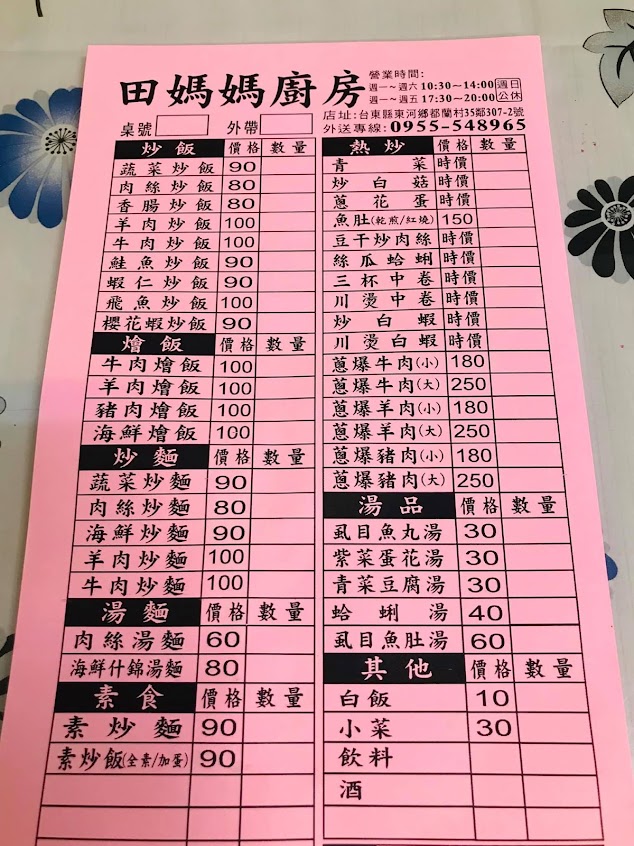 田媽媽廚房
營業時間:
週一~週六 10:30~14:00 週日
週一~週五 17:30~20:00 公休
店址:台東縣東河鄉都蘭村35鄰307-2號
桌號 外帶 外送專線: 0955-548965
炒飯 價格 數量
蔬菜炒飯 90
肉絲炒飯 80
香腸炒飯 80
羊肉炒飯 100
牛肉炒飯 100
鮭魚炒飯 90
蝦仁炒飯 90
飛魚炒飯 100
櫻花蝦炒飯 90
燴飯 價格 數量
牛肉燴飯 100
羊肉燴飯 100
豬肉燴飯 100
海鮮燴飯 100
炒麵 價格 數量
蔬菜炒麵 90
肉絲炒麵 80
海鮮炒麵 90
羊肉炒麵 100
牛肉炒麵 100
湯麵 價格 數量
肉絲湯麵 60
海鮮什錦湯麵 80
素食 價格 數量
素炒麵 90
素炒飯(全素/加蛋) 90
熱炒 價格 數量
青菜 時價
炒白菇 時價
蔥花蛋 時價
魚肚(乾煎/紅燒) 150
豆干炒肉絲 時價
絲瓜蛤蜊 時價
三杯中卷 時價
川燙中卷 時價
炒白蝦 時價
川燙白蝦 時價
蔥爆牛肉(小) 180
蔥爆牛肉(大) 250
蔥爆羊肉(小) 180
蔥爆羊肉(大) 250
蔥爆豬肉(小) 180
蔥爆豬肉(大) 250
湯品 價格 數量
虱目魚丸湯 30
紫菜蛋花湯 30
青菜豆腐湯 30
蛤蜊湯 40
虱目魚肚湯 60
其他 價格 數量
白飯 10
小菜 30
飲料
酒